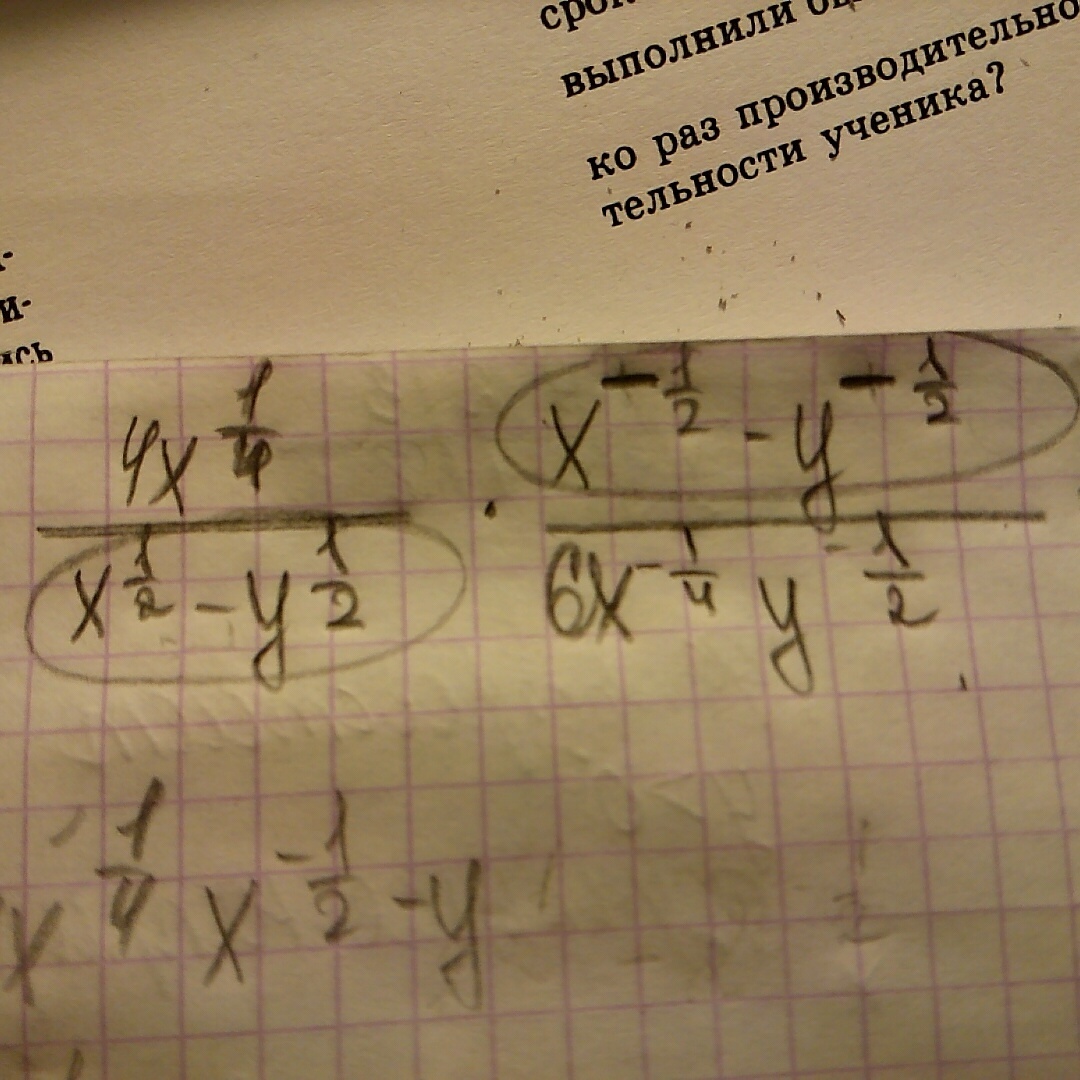 выполнили
ко раз производительно
тельности ученика?
и-
ись
4x^{1/4} / (x^{1/2} - y^{1/2}) · (x^{-1/2} - y^{-1/2}) / (6x^{-1/4} y^{-1/2})
x^{1/4} x^{-1/2} - y